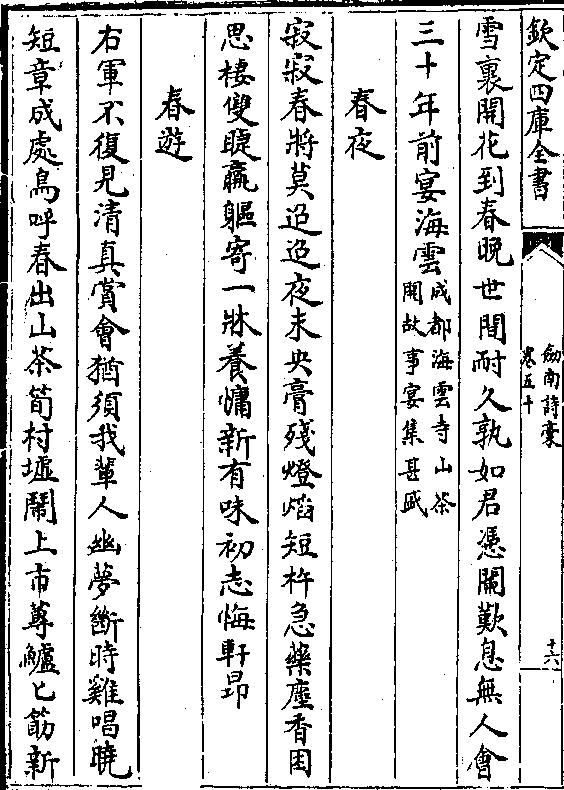 欽定四庫全書
劍南詩稾
卷五十
十六
雪裏開花到春晚世間耐久孰如君憑闌歎息無人會
三十年前宴海雲成都海雲寺山茶
開故事宴集甚盛
春夜
寂寂春將莫迢迢夜未央膏殘燈焰短杵急藥塵香困
思棲雙睫羸軀寄一牀養慵新有味初志悔軒昂
春遊
右軍不復見清真賞會猶須我輩人幽夢斷時雞唱曉
短章成處鳥呼春出山茶筍村墟鬧上市蓴鱸匕筯新